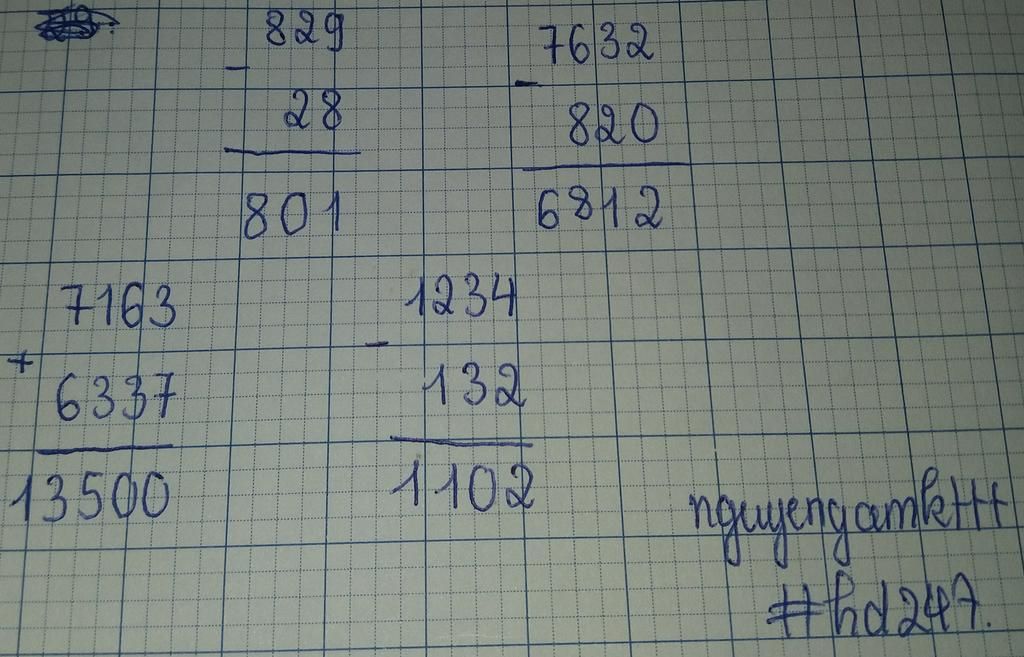 829
-
28
801
7632
-
820
6812
7163
+
6337
13500
1234
-
132
1102
nguyengamkttt
#hd247.